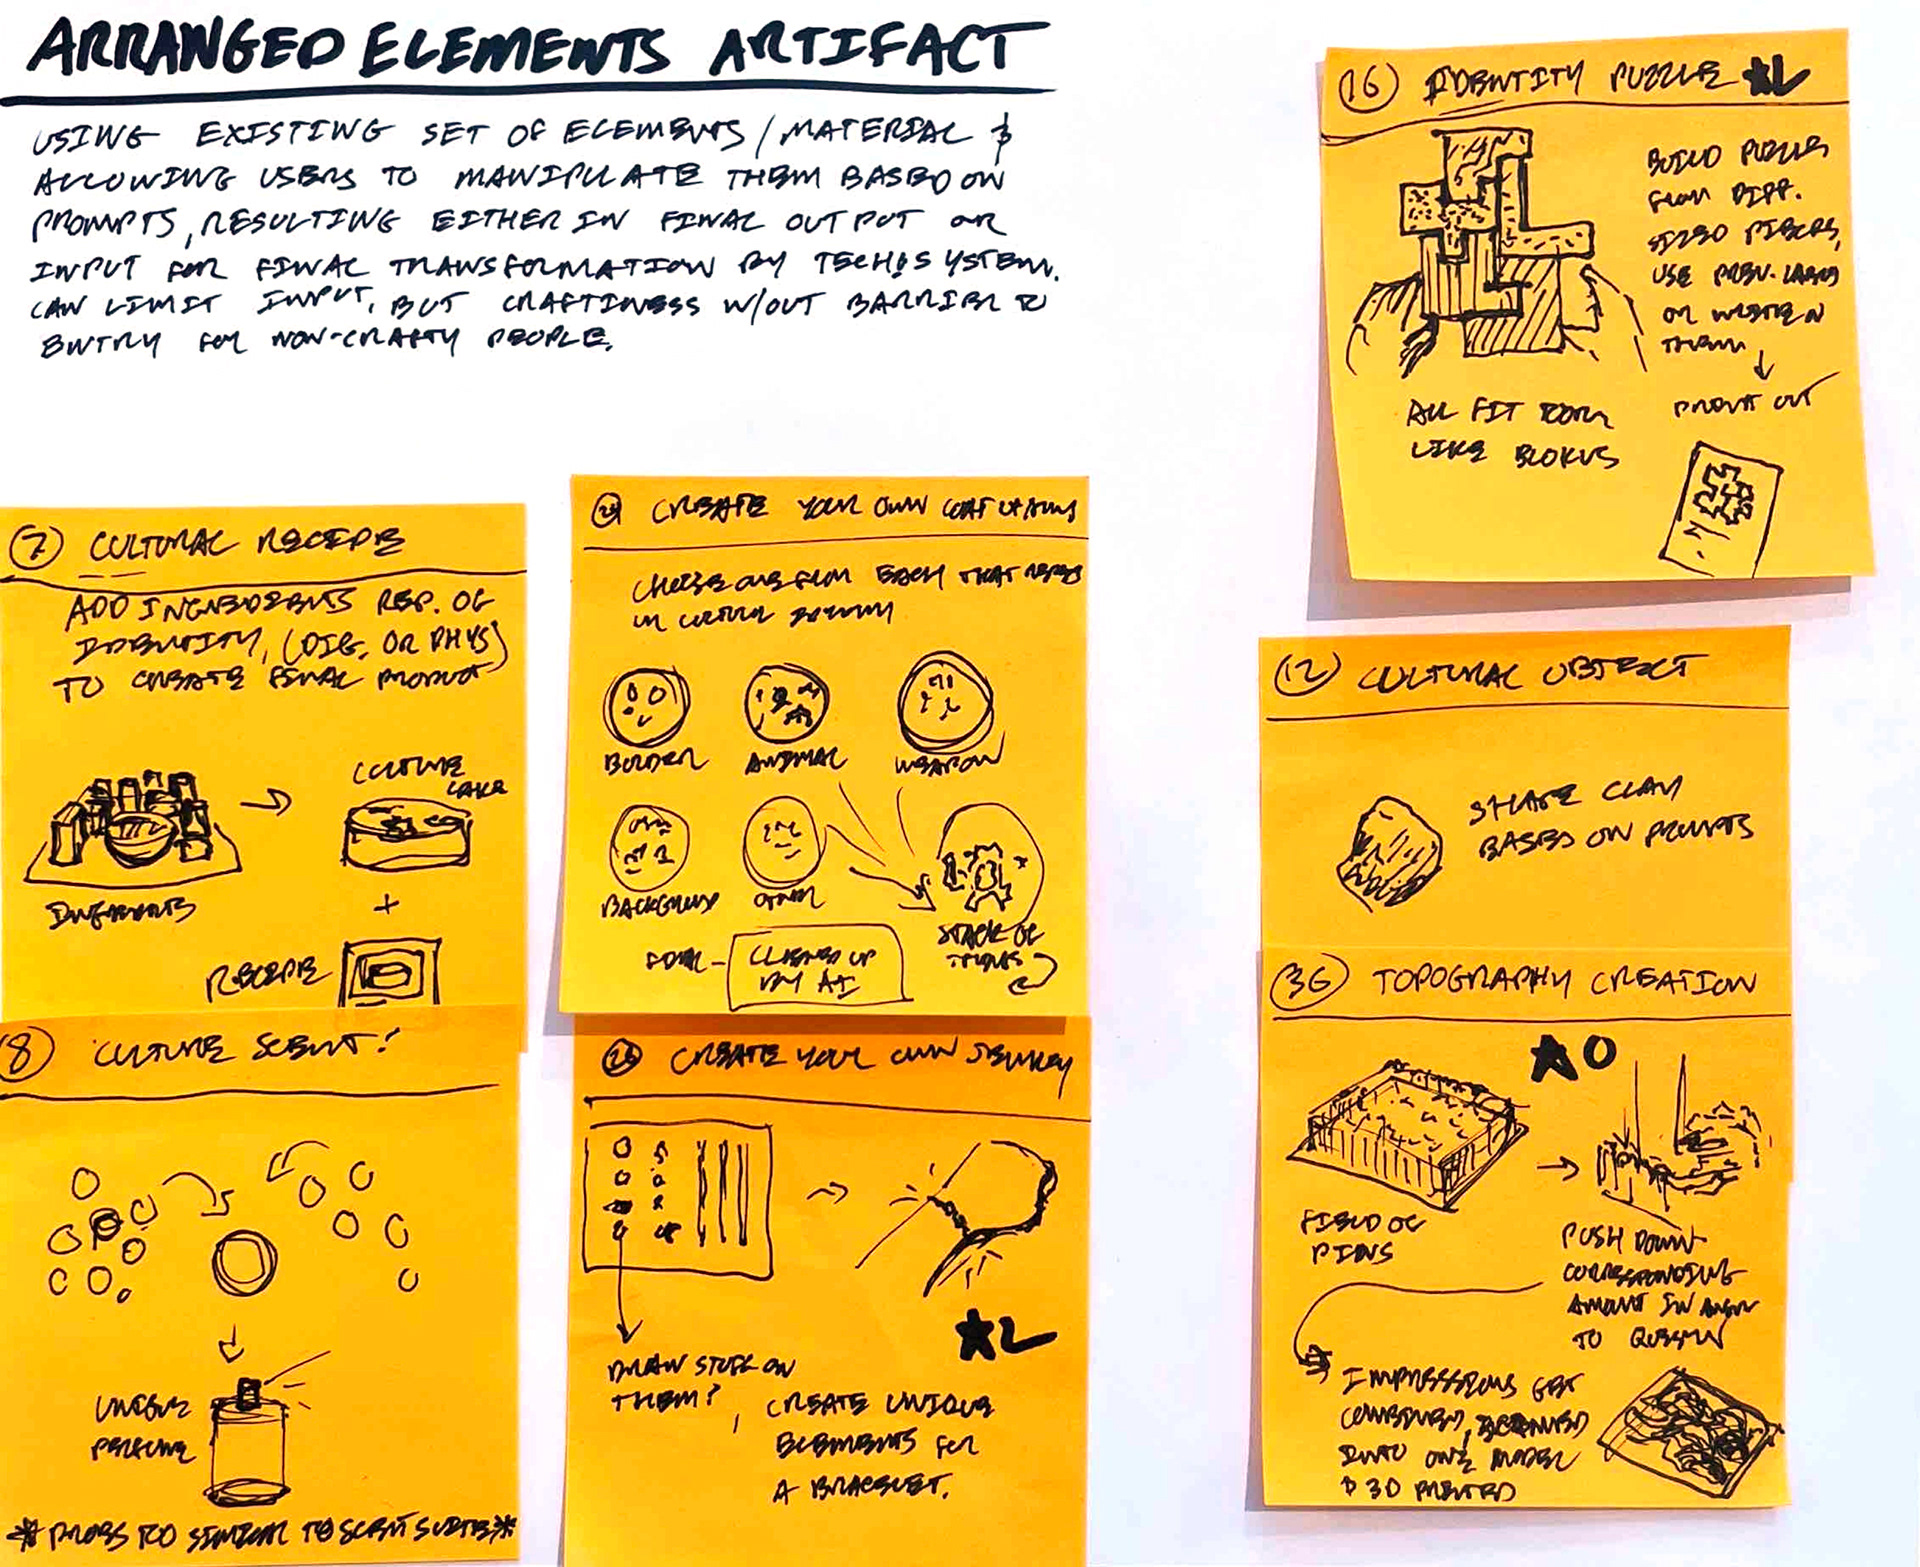 ARRANGED ELEMENTS ARTIFACT
USING EXISTING SET OF ELEMENTS/MATERIAL &
ALLOWING USERS TO MANIPULATE THEM BASED ON
PROMPTS, RESULTING EITHER IN FINAL OUTPUT OR
INPUT FOR FINAL TRANSFORMATION BY TECH/SYSTEM.
CAN LIMIT INPUT, BUT CRAFTINESS W/OUT BARRIER TO
ENTRY FOR NON-CRAFTY PEOPLE.
7 CULTURAL RECIPE
ADD INGREDIENTS REP. OF
IDENTITY, (DIG. OR PHYS)
TO CREATE FINAL PRODUCT
CULTURE
CAKE
+
INGREDIENTS
RECIPE
8 CULTURE SCENT!
UNIQUE
PERFUME
SIMILAR TO SCENT
CREATE YOUR OWN COAT OF ARMS
CHOOSE ONE FROM EACH THAT
IN CULTURE
BORDER
ANIMAL
WEAPON
BACKGROUND
OTHER
STACK OF
CLEANED UP
BY AI
CREATE YOUR OWN JEWELRY
DRAW STUFF ON
THEM?
L
CREATE UNIQUE
ELEMENTS FOR
A BRACELET.
16 IDENTITY PUZZLE ★L
BUILD PUZZLE
FROM DIFF.
SIZED PIECES,
USE PREV. LABELS
OR WRITE ON
THEM
PRINT OUT
ALL FIT TOGETHER
LIKE BLOKUS
12 CULTURAL OBJECT
SHAPE CLAY
BASED ON PROMPTS
36 TOPOGRAPHY CREATION
★O
FIELD OF
PINS
PUSH DOWN
CORRESPONDING
AMOUNT IN ANSWER
TO QUESTION
IMPRESSIONS GET
COMBINED, SCANNED
INTO ONE MODEL
& 3D PRINTED